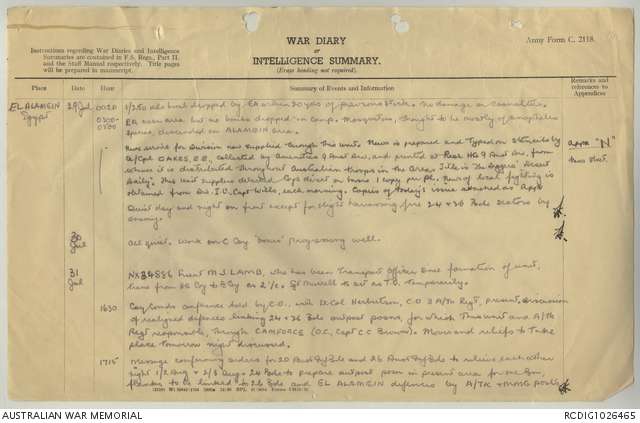 WAR DIARY
or
INTELLIGENCE SUMMARY.
(Erase heading not required).
Army Form C. 2118.
Instructions regarding War Diaries and Intelligence
Summaries are contained in F.S. Regs., Part II.
and the Staff Manual respectively. Title pages
will be prepared in manuscript.
Place
Date
Hour
Summary of Events and Information
Remarks and
references to
Appendices
EL ALAMEIN
Egypt
29 Jul 0020 1/250 kilo bomb dropped by EA within 30 yds of previous No damage or casualties.
0300- EA over area but no bombs dropped in camp. Mosquitoes, thought to be mostly of anopheles
0500 species, descended on ALAMEIN area.
News service for Division now supplied through this unit. News is prepared and typed on stencils by
A/Cpl OAKES, collected by Amenities 9 Aust Div, and printed at Rear HQ 9 Aust Div, from
where it is distributed throughout Australian troops in the area. Title is "The Diggers' Desert
Daily". This unit supplies detailed Cpl direct on basis 1 copy per pl. News of local fighting is
obtained from Div. I.O, Capt Wills, each morning. Copies of today's issue attached as Appx
Appx "N"
this sheet.
Quiet day and night on front except for slight harassing fire 24 & 26 Bde sectors by
enemy.
30 Jul All quiet. Work on C Coy "boxes" progressing well.
31 Jul NX34886 Lieut M.J. LAMB, who has been Transport Officer since formation of unit,
here from HQ Coy to B Coy as 2 i/c. Murrell to act as T.O. temporarily.
1630 Coy Comds conference held by C.O., with Lt Col Herbertson, C.O 3 A/Tk Regt, present, discussion
of realigned defences linking 24 & 26 Bde outpost posns, for which this unit and A/Tk
Regt responsible, through CAMFORCE (O.C., Capt C.C. Brown). Moves and reliefs to take
place tomorrow night discussed.
1715 Message confirming orders for 20 Aust Inf Bde and 26 Aust Inf Bde to relieve each other
night 1/2 Aug & 2/3 Aug. 24 Bde to prepare outpost posn in present area for one Bn,
flanks to be linked to 26 Bde and EL ALAMEIN defences by A/TK & MMG posts.
AUSTRALIAN WAR MEMORIAL
RCDIG1026465